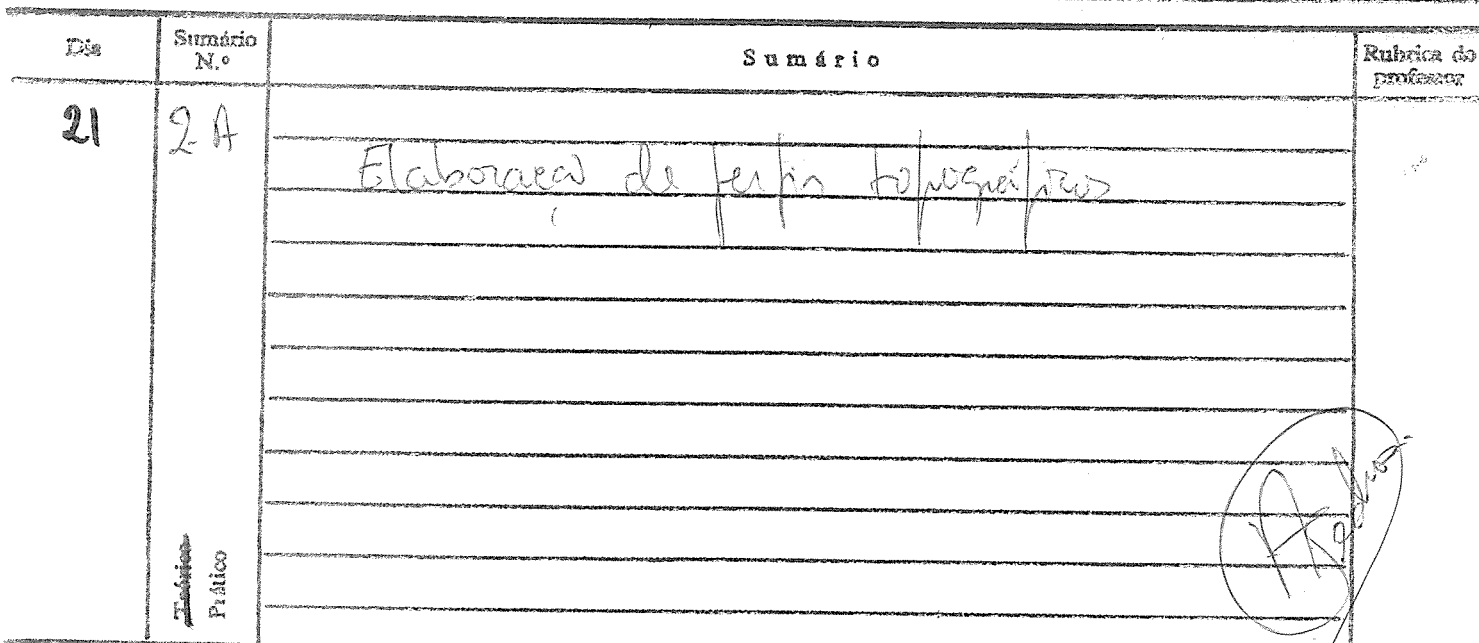 Dia
Sumário N.º
Sumário
Rubrica do professor
21
2 A
Elaboração de perfis topográficos
Teórico
Prático